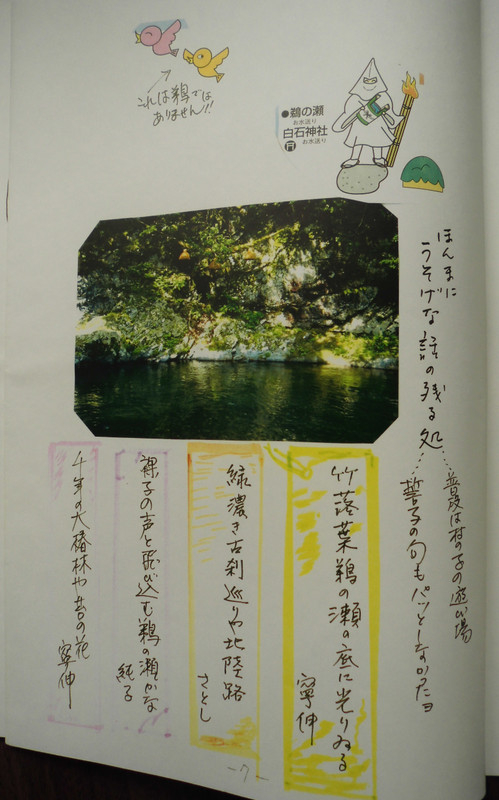 これは鵜では
ありません!!
●鵜の瀬
お水送り
白石神社
お水送り
ほんまに
うそげな話の残る処……
普段は村の子の遊び場
誓子の句もパッとしなかったヨ
竹落葉鵜の瀬の底に光りゐる
寧伸
緑濃き古刹巡りや北陸路
さとし
裸子の声と飛び込む鵜の瀬かな
純子
千年の大椿林や苔の花
寧伸
-7-